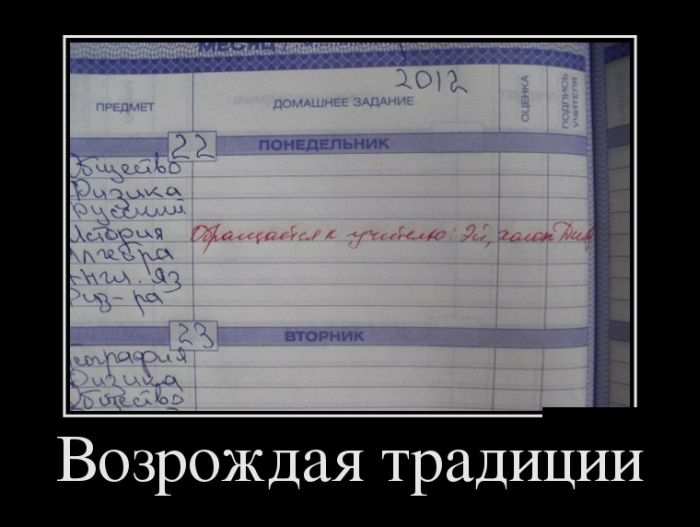 МЕСЯЦ
2012
ПРЕДМЕТ ДОМАШНЕЕ ЗАДАНИЕ ОЦЕНКА ПОДПИСЬ УЧИТЕЛЯ
22 ПОНЕДЕЛЬНИК
Общество
Физика
Русский
История Обращается к учителю: Эй, холоп
Алгебра
Англ. яз
Физ-ра
23 ВТОРНИК
География
Физика
Общество
Возрождая традиции